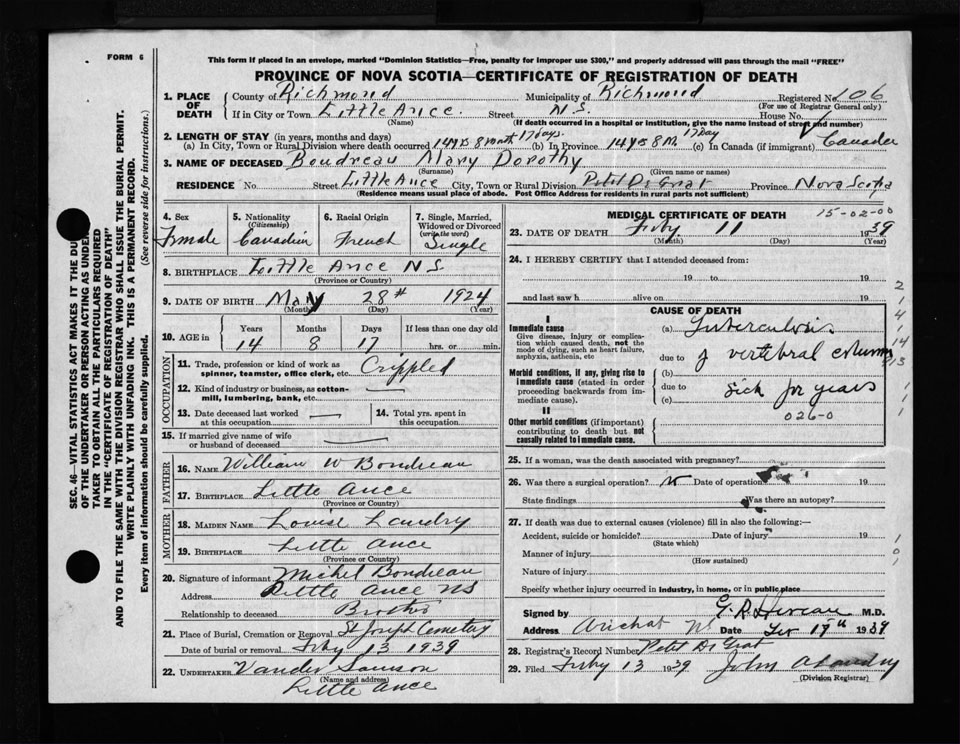 FORM 6
This form if placed in an envelope, marked "Dominion Statistics—Free, penalty for improper use $300," and properly addressed will pass through the mail "FREE"
PROVINCE OF NOVA SCOTIA—CERTIFICATE OF REGISTRATION OF DEATH
1. PLACE OF DEATH
County of Richmond Municipality of Richmond Registered No. 106
(For use of Registrar General only)
If in City or Town Little Ance. Street N.S House No.
(Name) (If death occurred in a hospital or institution, give the name instead of street and number)
2. LENGTH OF STAY (in years, months and days)
(a) In City, Town or Rural Division where death occurred 14 yrs 8 month 17 days. (b) In Province 14 yrs 8 M. 17 Day (c) In Canada (if immigrant)
3. NAME OF DECEASED Boudreau Mary Dorothy
(Surname) (Given name or names)
RESIDENCE No. Street Little Ance City, Town or Rural Division Petit De Grat Province Nova Scotia
(Residence means usual place of abode. Post Office Address for residents in rural parts not sufficient)
4. Sex
Female
5. Nationality
(Citizenship)
Canadian
6. Racial Origin
French
7. Single, Married, Widowed or Divorced
(write the word)
Single
8. BIRTHPLACE Little Ance N S
(Province or Country)
9. DATE OF BIRTH May 28th 1924
(Month) (Day) (Year)
10. AGE in Years Months Days If less than one day old
14 8 17 hrs. or min.
OCCUPATION
11. Trade, profession or kind of work as spinner, teamster, office clerk, etc. Crippled
12. Kind of industry or business, as cotton-mill, lumbering, bank, etc.
13. Date deceased last worked at this occupation
14. Total yrs. spent in this occupation
15. If married give name of wife or husband of deceased
FATHER
16. NAME William W Boudreau
17. BIRTHPLACE Little Ance
(Province or Country)
MOTHER
18. MAIDEN NAME Louise Landry
19. BIRTHPLACE Little Ance
(Province or Country)
20. Signature of informant Michel Boudreau
Address Little Ance NS
Relationship to deceased Brother
21. Place of Burial, Cremation or Removal St Joseph Cemetery
Date of burial or removal Feby 13 1939
22. UNDERTAKER Vander Samson
(Name and address)
Little Ance
MEDICAL CERTIFICATE OF DEATH 15-02-00
23. DATE OF DEATH Feby 11 1939
(Month) (Day) (Year)
24. I HEREBY CERTIFY that I attended deceased from:
19 to 19
and last saw h alive on 19
CAUSE OF DEATH
I
Immediate cause
Give disease, injury or complication which caused death, not the mode of dying, such as heart failure, asphyxia, asthenia, etc
(a) Tuberculosis
due to of vertebral column
Morbid conditions, if any, giving rise to immediate cause (stated in order proceeding backwards from immediate cause).
(b)
due to Sick for years
(c)
II
026-0
Other morbid conditions (if important) contributing to death but not causally related to immediate cause.
25. If a woman, was the death associated with pregnancy?
26. Was there a surgical operation? No Date of operation 19
State findings Was there an autopsy?
27. If death was due to external causes (violence) fill in also the following:—
Accident, suicide or homicide? Date of injury 19
(State which)
Manner of injury
(How sustained)
Nature of injury
Specify whether injury occurred in industry, in home, or in public place
Signed by M.D.
Address Arichat NS Date Feb 19th 1939
28. Registrar's Record Number Petit De Grat
29. Filed Feby 13 1939 John A Landry
(Division Registrar)
SEC. 46—VITAL STATISTICS ACT MAKES IT THE DUTY
OF THE UNDERTAKER OR PERSON ACTING AS UNDERTAKER TO OBTAIN ALL THE PARTICULARS REQUIRED
IN THE "CERTIFICATE OF REGISTRATION OF DEATH"
AND TO FILE THE SAME WITH THE DIVISION REGISTRAR WHO SHALL ISSUE THE BURIAL PERMIT.
WRITE PLAINLY WITH UNFADING INK. THIS IS A PERMANENT RECORD.
Every item of information should be carefully supplied. (See reverse side for instructions.)